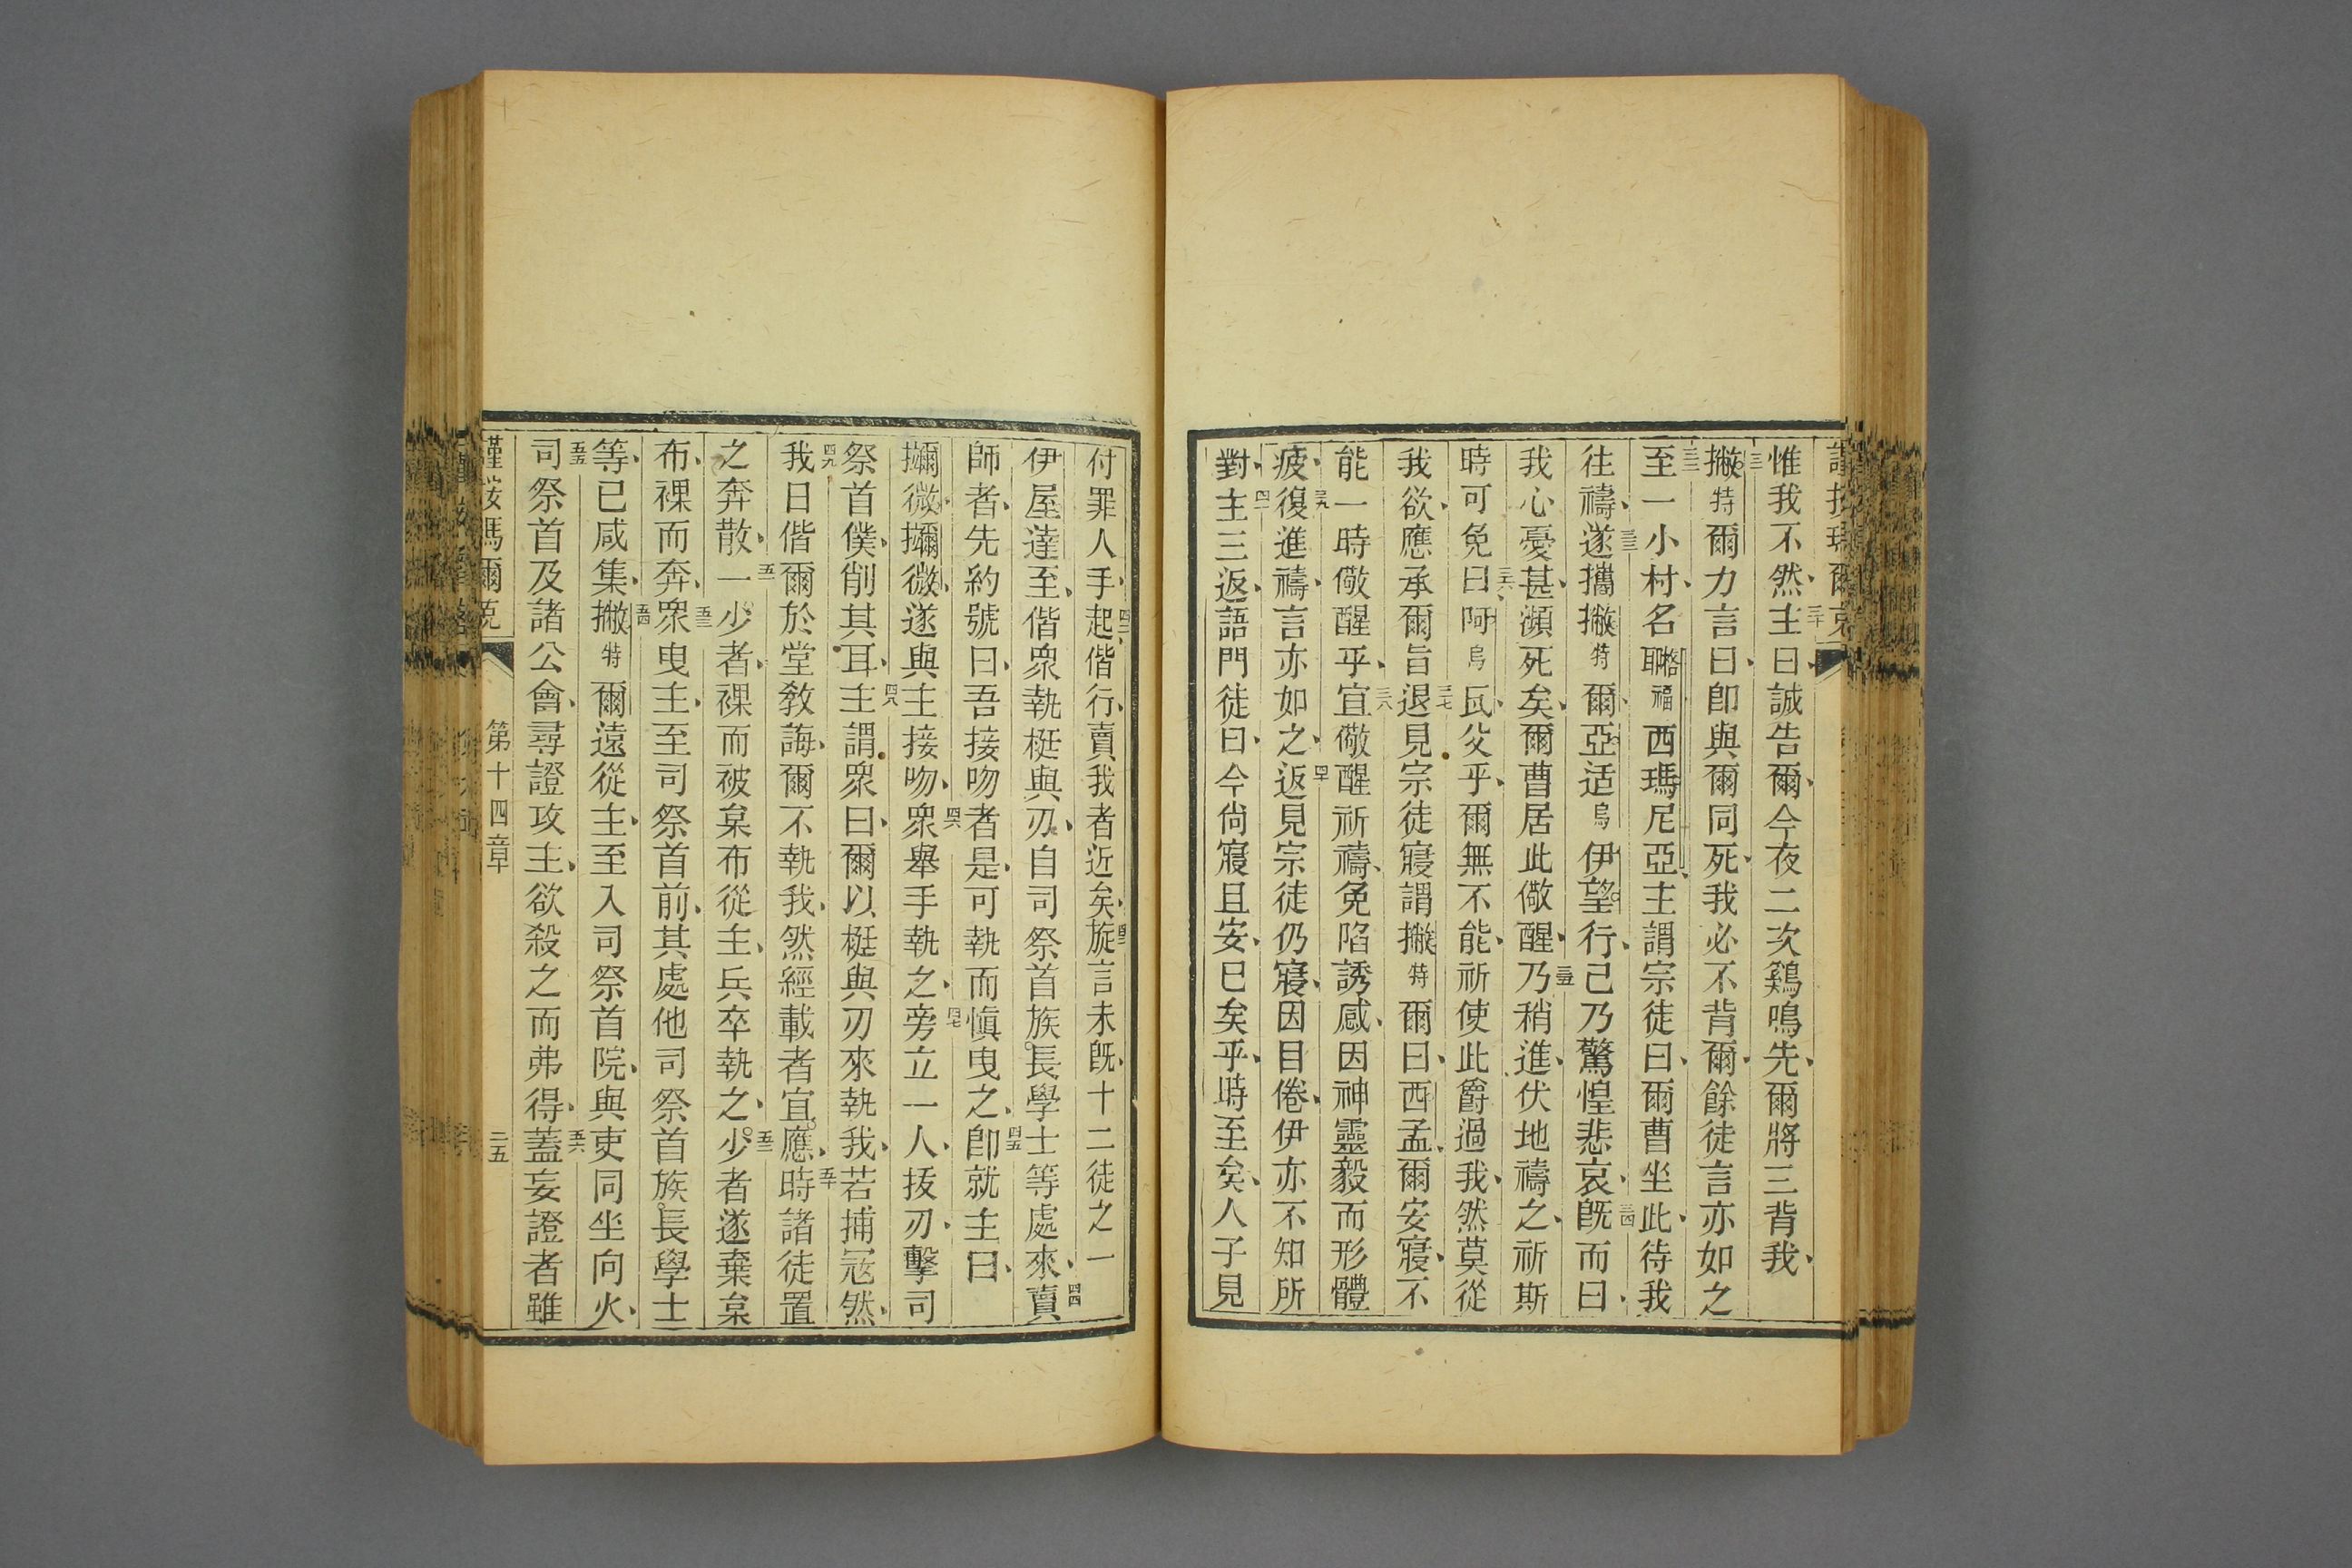 惟我不然、三十主曰、誠告爾、今夜二次鷄鳴先、爾將三背我、
三一撇特爾力言曰、卽與爾同死、我必不背爾、餘徒言亦如之
三二至一小村、名聊格福西瑪尼亞、主謂宗徒曰、爾曹坐此、待我
往禱、三三遂攜撇特爾、亞适烏伊望行、己乃驚惶悲哀、三四旣而曰、
我心憂甚、瀕死矣、爾曹居此儆醒、三五乃稍進、伏地禱之、祈斯
時可免三六曰、阿烏瓦父乎、爾無不能、祈使此爵過我、然莫從
我欲、應承爾旨三七退見宗徒寢謂撇特爾曰、西孟、爾安寢、不
能一時儆醒乎、三八宜儆醒祈禱、免陷誘感、因神靈毅而形體
疲、三九復進禱、言亦如之、四十返見宗徒仍寢、因目倦、伊亦不知所
對、四一主三返、語門徒曰、今尙寢且安、已矣乎、時至矣、人子見
付罪人手、四二起偕行、賣我者近矣、四三旋言未旣、十二徒之一
伊屋達至、偕衆執梃與刃、自司祭首族長學士等處來、四四賣
師者、先約號曰、吾接吻者是、可執而愼曳之、四五卽就主曰、
攝微攝微、遂與主接吻、四六衆舉手執之、四七旁立一人、拔刃擊司
祭首僕、削其耳、四八主謂衆曰、爾以梃與刃來執我、若捕冦然、
四九我日偕爾於堂敎誨、爾不執我、然經載者宜應、五十時諸徒置
之奔散、五一一少者、裸而被枲布從主、兵卒執之、五二少者遂棄枲
布、裸而奔、五三衆曳主、至司祭首前、其處他司祭首族長學士
等、已咸集、五四撇特爾遠從主、至入司祭首院、與吏同坐向火、
五五司祭首及諸公會、尋證攻主、欲殺之而弗得、五六蓋妄證者雖
瑪爾克
第十四章
二五